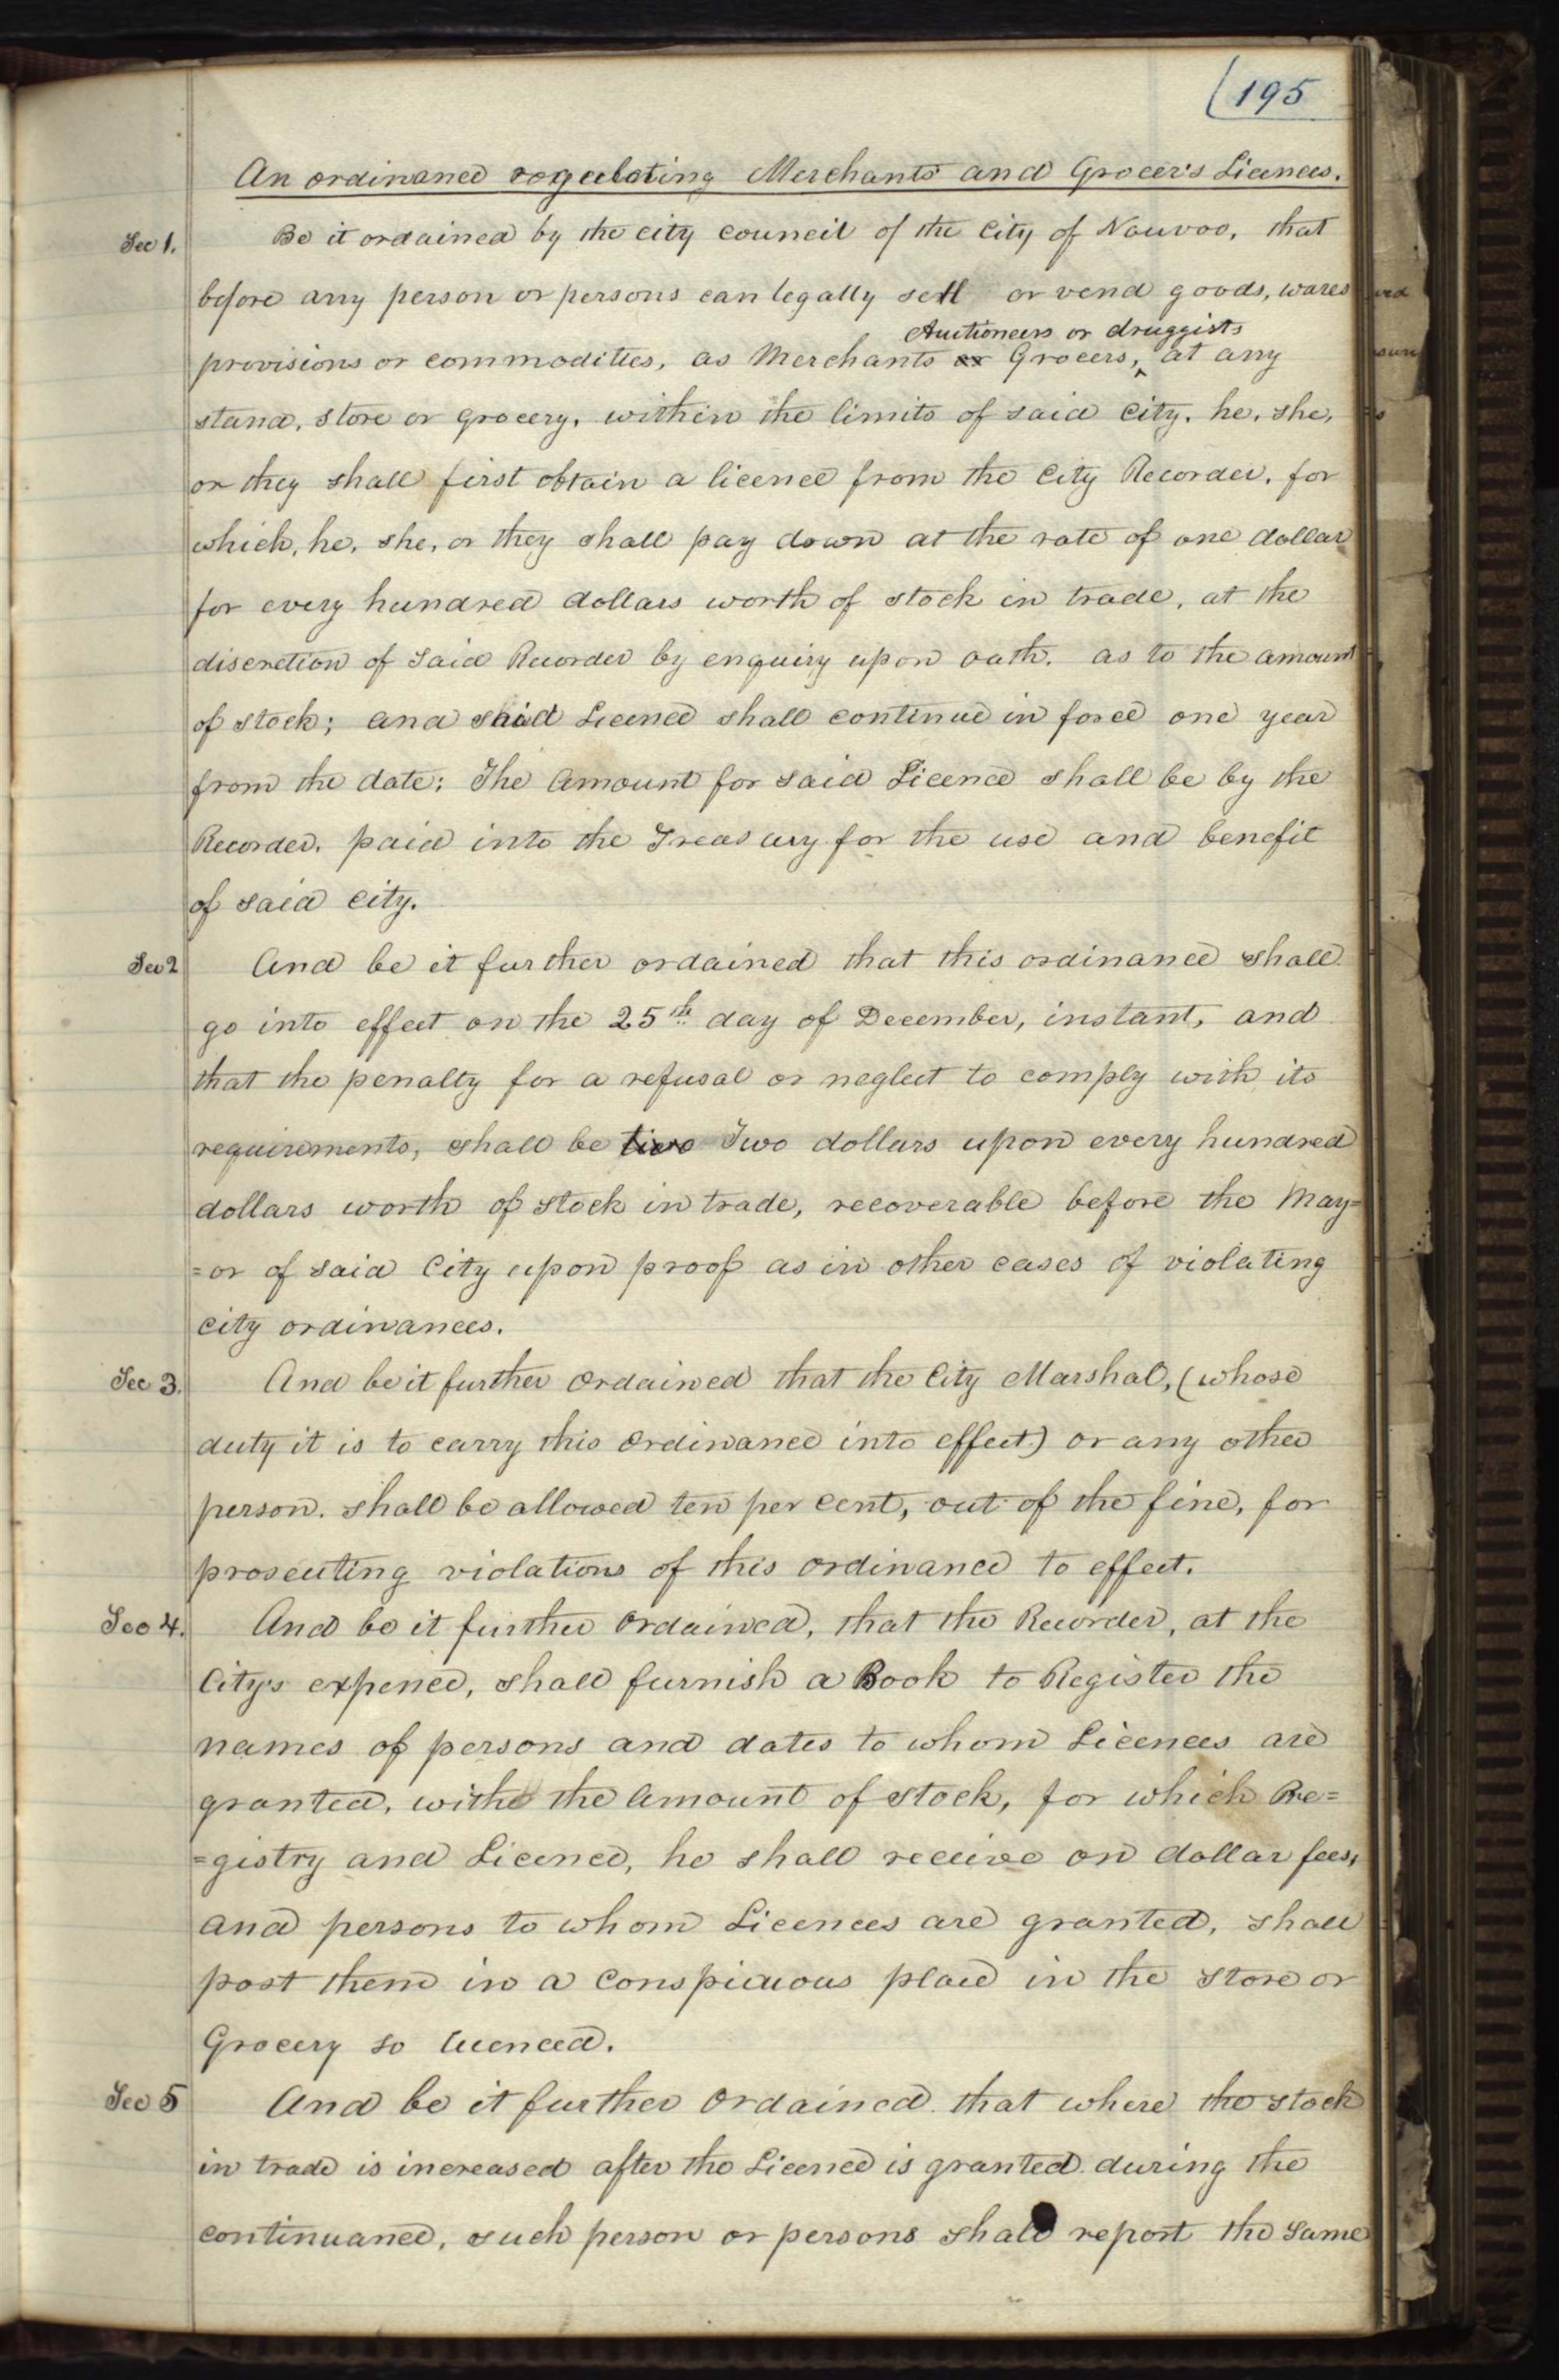 (195
An ordinance regulating Merchants and Grocer's Licences.
Sec 1. Be it ordained by the city council of the City of Nauvoo, that
before any person or persons can legally sell or vend goods, wares
Auctioneers or druggists
provisions or commodities, as Merchants or Grocers, ‸ at any
stand, store or grocery, within the limits of said city, he, she,
or they shall first obtain a licence from the City Recorder, for
which, he, she, or they shall pay down at the rate of one dollar
for every hundred dollars worth of stock in trade, at the
discretion of said Recorder by enquiry upon oath. as to the amount
of stock; and said Licence shall continue in force one year
from the date: The Amount for said Licence shall be by the
Recorder. paid into the Treasury for the use and benefit
of said city.
Sec 2 And be it further ordained that this ordinance shall
go into effect on the 25th day of December, instant, and
that the penalty for a refusal or neglect to comply with its
requirements, shall be two Two dollars upon every hundred
dollars worth of stock in trade, recoverable before the May=
=or of said City upon proof as in other cases of violating
city ordinances.
Sec 3. And be it further Ordained that the City Marshal, (whose
duty it is to carry this Ordinance into effect.) or any other
person. shall be allowed ten per cent, out of the fine, for
proscuting violations of this ordinance to effect.
Sec 4. And be it further Ordained, that the Recorder, at the
City's expence, shall furnish a Book to Register the
names of persons and dates to whom Licences are
granted, with the Amount of stock, for which Re=
=gistry and Licence, he shall receive on dollar fees,
and persons to whom Licences are granted, shall
post them in a Conspicuous place in the Store or
Grocery so licenced.
Sec 5 And be it further Ordained that where the stock
in trade is increased after the Licence is granted during the
continuance, such person or persons shall report the same